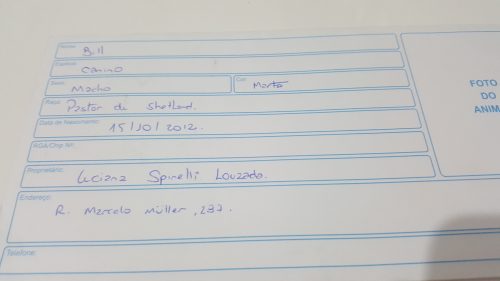 Nome: Bill
Espécie: Canino
Sexo: Macho Cor: Marta
Raça: Pastor de Shetland.
Data de Nascimento: 15/10/2012.
RGA/Chip Nº:
Proprietário: Luciana Spinelli Louzado.
Endereço: R. Marcelo Müller, 237.
Telefone:
FOTO
DO
ANIM